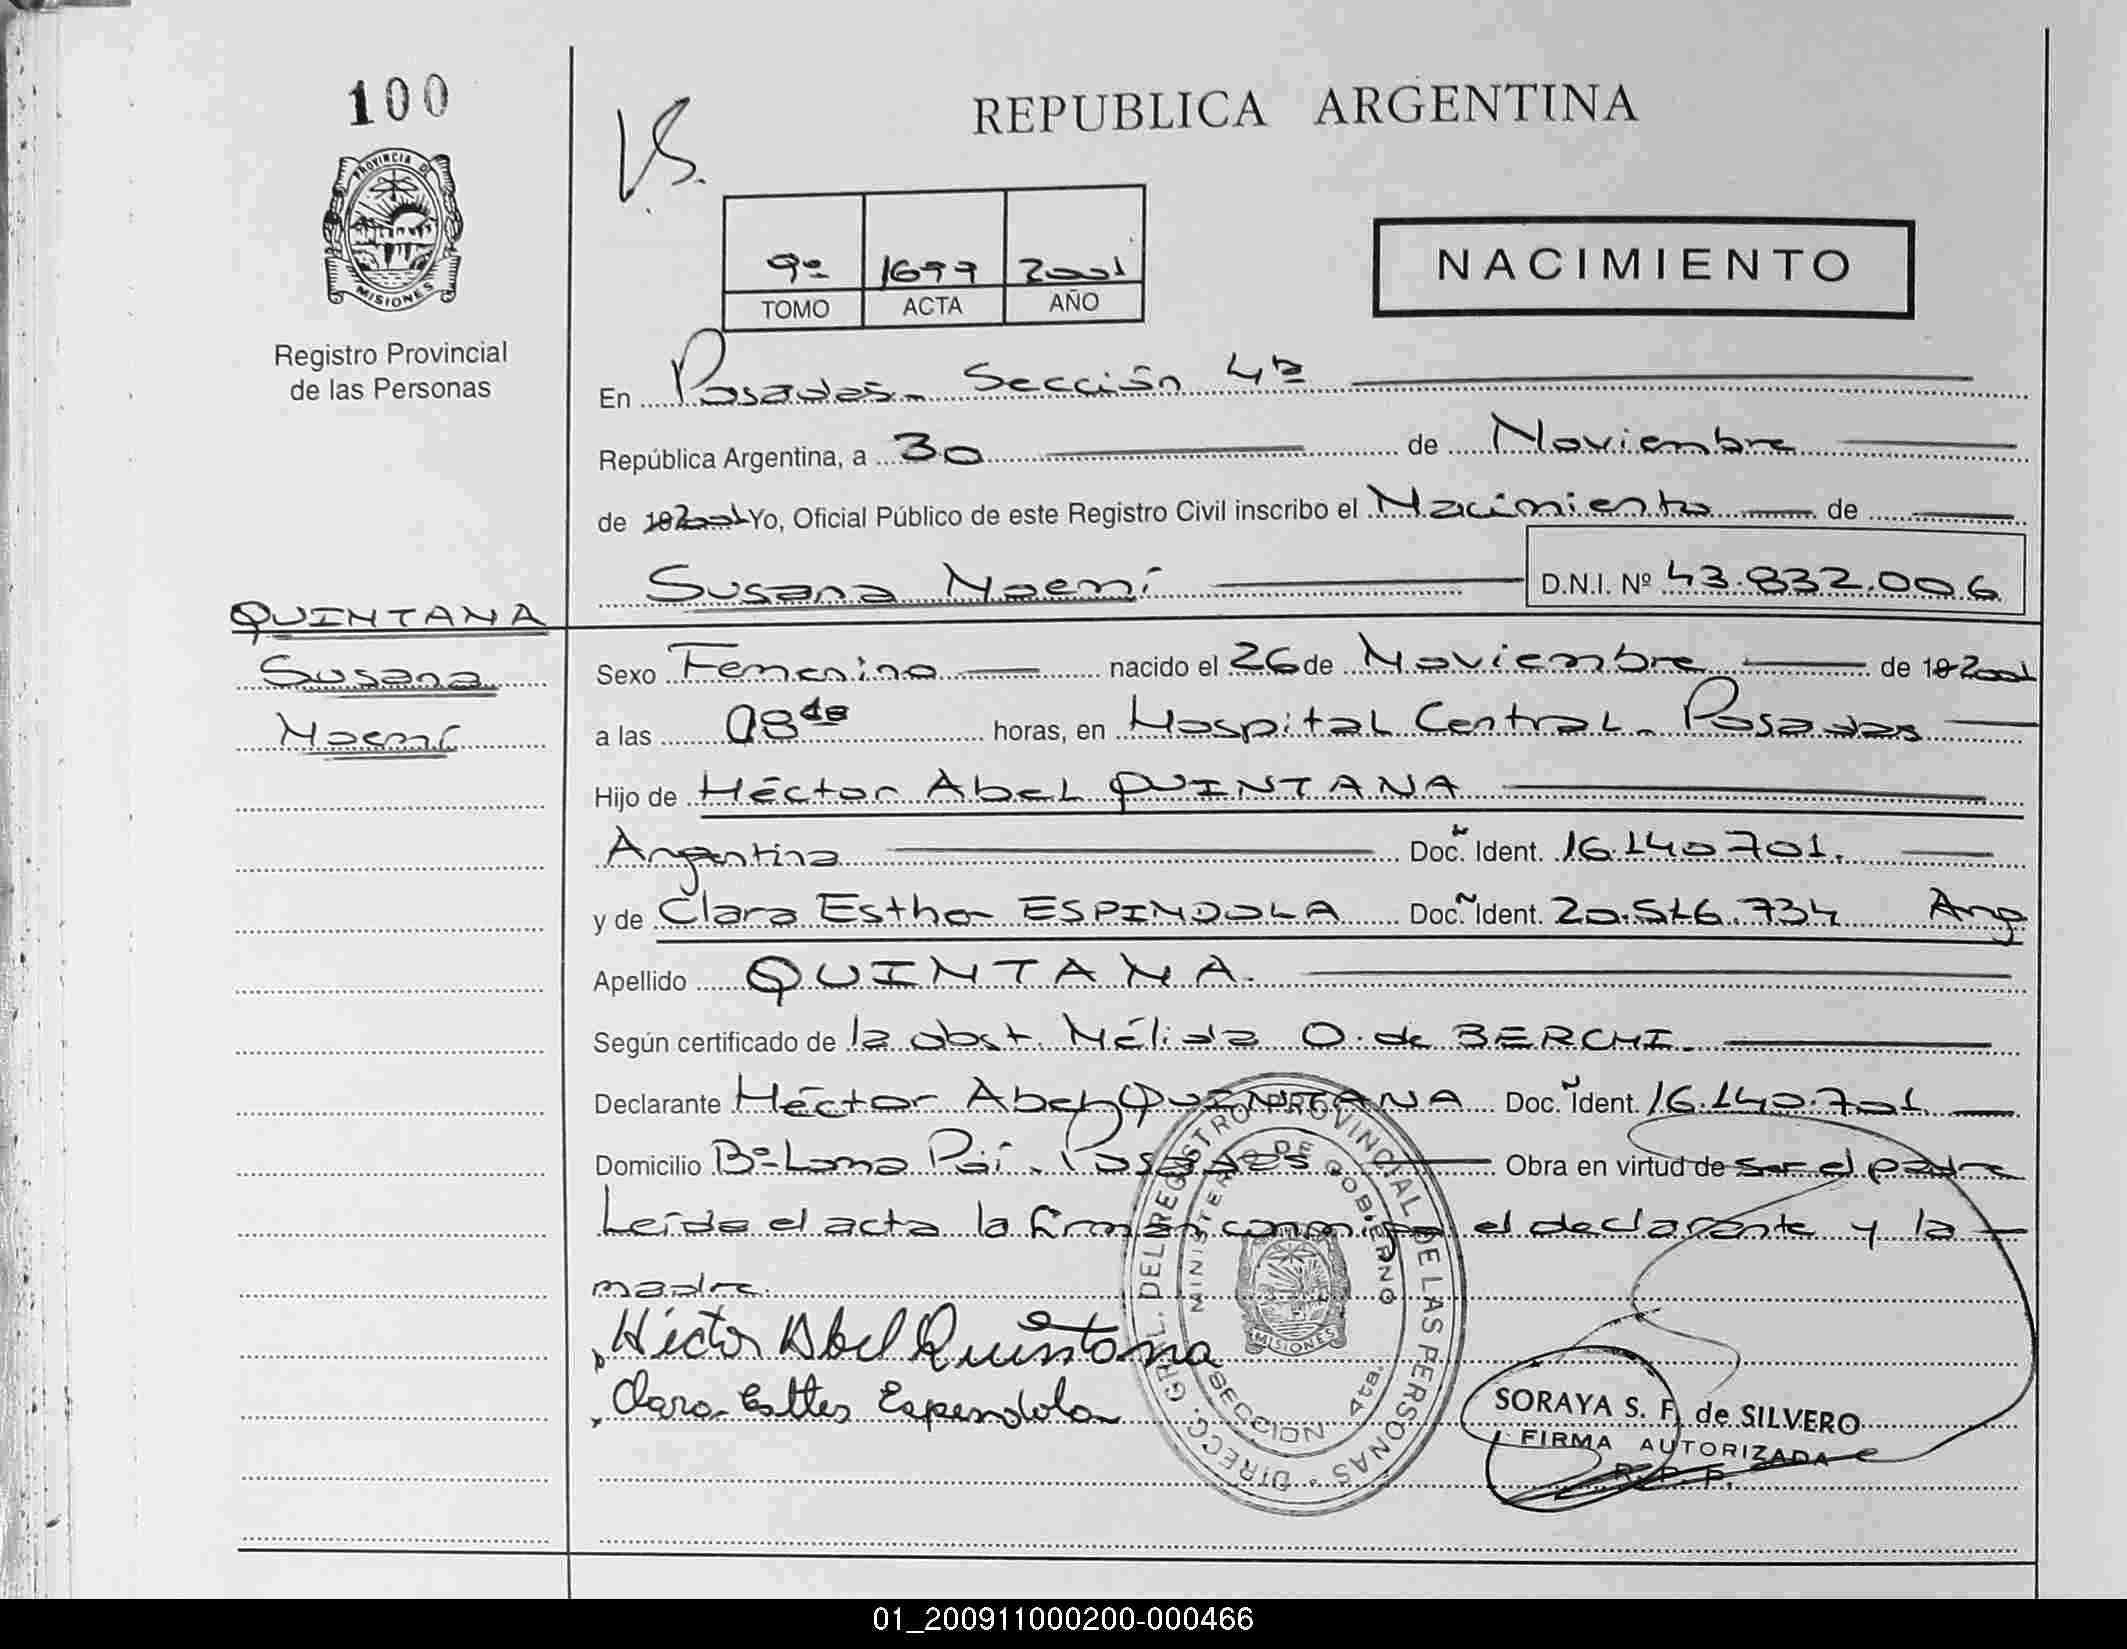 100
PROVINCIA D
MISIONES
Registro Provincial
de las Personas
V.S.
REPUBLICA ARGENTINA
9º 1677 2001
TOMO ACTA AÑO
NACIMIENTO
En Posadas - Sección 4ª
República Argentina, a 30 de Noviembre
de 2001 Yo, Oficial Público de este Registro Civil inscribo el Nacimiento de
Susana Noemí D.N.I. Nº 43.832.006
QUINTANA
Susana
Noemí
Sexo Femenino nacido el 26 de Noviembre de 19 2001
a las horas, en Hospital Central - Posadas
Hijo de Héctor Abel QUINTANA
Argentina Doc. Ident. 16.140.701.
y de Clara Esther ESPINDOLA Doc. Ident. 20.516.734 Arg
Apellido QUINTANA.
Según certificado de la obst. Nélida O. de BERCHI.
Declarante Héctor Abel QUINTANA Doc. Ident. 16.140.701
Domicilio Bº Loma Poi. Posadas Obra en virtud de ser el padre
Leída el acta la firman conmigo el declarante y la
madre.
Héctor Abel Quintana
Clara Esther Espindola
DIRECC. GRAL. DEL REGISTRO PROVINCIAL DE LAS PERSONAS
MINISTERIO DE GOBIERNO
MISIONES
SECCION 4ta.
SORAYA S. F. de SILVERO
FIRMA AUTORIZADA
R. P. P.
01_200911000200-000466